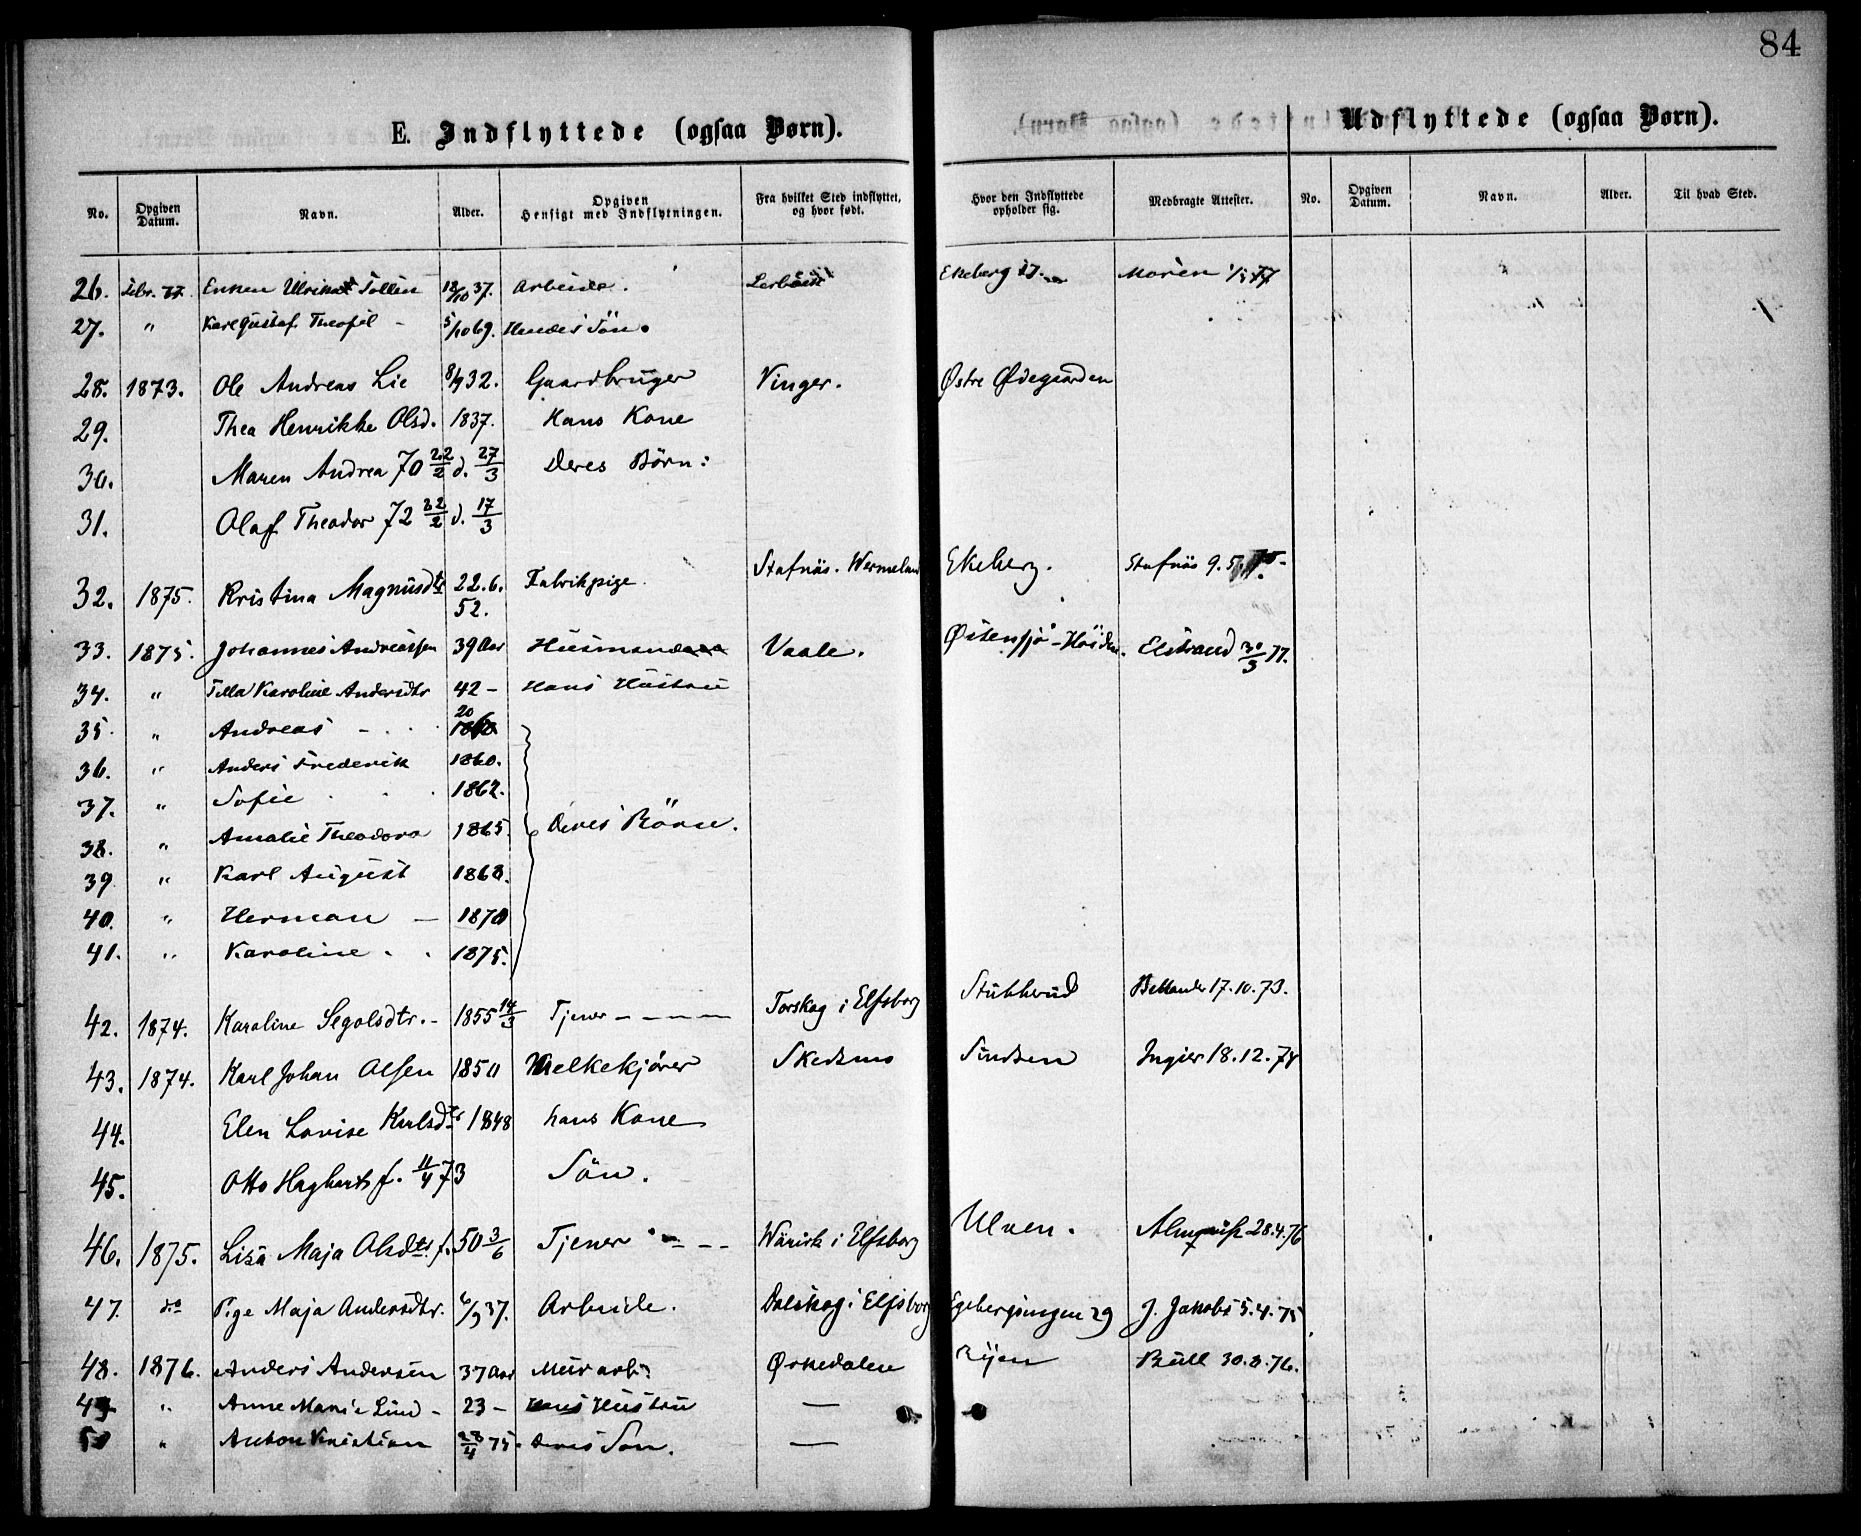 84
E. Indflyttede (ogsaa Børn). Udflyttede (ogsaa Børn).
No. Opgiven Datum. Navn. Alder. Opgiven Hensigt med Indflytningen. Fra hvilket Sted indflyttet, og hvor født. Hvor den Indflyttede opholder sig. Medbragte Attester. No. Opgiven Datum. Navn. Alder. Til hvad Sted.
26. Febr. 77. Enken Ulrika Tollin 18/10 37. Arbeide. Ekeberg 17. Morén
27. " Karl Gustaf Theofil - 5/10 69. Hendes Sön.
28. 1873. Ole Andreas Lie 8/9 32. Gaardbruger Vinger. Østre Ødegaarden
29. Thea Henrikke Olsd. 1837. Hans Kone
30. Maren Andrea 70 22/2 d. 27/3 Deres Börn:
31. Olaf Theodor 72 22/2 d. 17/3
32. 1875. Kristina Magnusdtr 22.6.52. Fabrikpige. Stafnäs. Wermeland Ekeberg. Stafnäs 9.5.
33. 1875. Johannes Andreassen 39 Aar Husmand Vaale. Østensjö - Elstrand 30/3 77.
34. " Karoline Andersdtr 42 - Hans Hustru
35. " Andreas - 20
36. " Anders Frederik 1860.
37. " Sofie 1862.
38. " Amalie Theodora 1865. Deres Börn.
39. " Karl August 1868.
40. " Herman - 1870
41. " Karoline 1875.
42. 1874. Karoline Segolsdtr. - 1855 14/3 Tjener - - - - Torskog i Elfsborg Stubberud Bellander 17.10.73.
43. 1874. Karl Johan Olsen 1850 Melkekjører Skedsmo Sinsen Ingier 18.12.74
44. Elen Lovise Karlsdtr 1848 hans Kone
45. Otto Hagbart f. 11/4 73 Sön.
46. 1875. Lisa Maja Olsdtr. f. 50 3/6 Tjener - - - i Elfsborg Ulven. 28.4.76
47. do Pige Maja Andersdtr. 6/9 37. Arbeide. Dalskog i Elfsborg Egebergsvingen 29 J. Jakobs 5.4.75
48. 1876. Anders Andersen 37 Aar Murarb: Ørkedalen Ryen Bull 30.8.76.
49 " Anne Marie Lund - 23 - Hans Hustru —
50 " Anton Kristian 28/4 75. Deres Sön. —